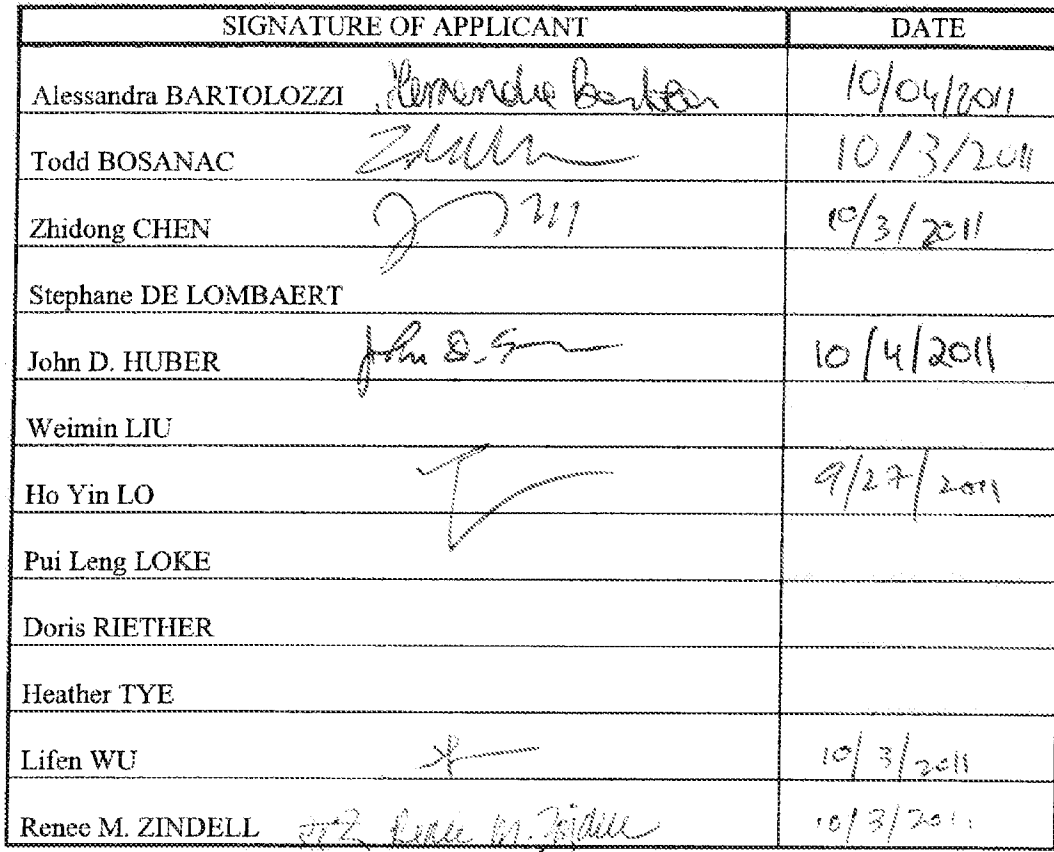 SIGNATURE OF APPLICANT DATE
Alessandra BARTOLOZZI 10/04/2011
Todd BOSANAC 10/3/2011
Zhidong CHEN 10/3/2011
Stephane DE LOMBAERT
John D. HUBER John D. 10/4/2011
Weimin LIU
Ho Yin LO 9/27/2011
Pui Leng LOKE
Doris RIETHER
Heather TYE
Lifen WU 10/3/2011
Renee M. ZINDELL Renee M. Zindell 10/3/2011